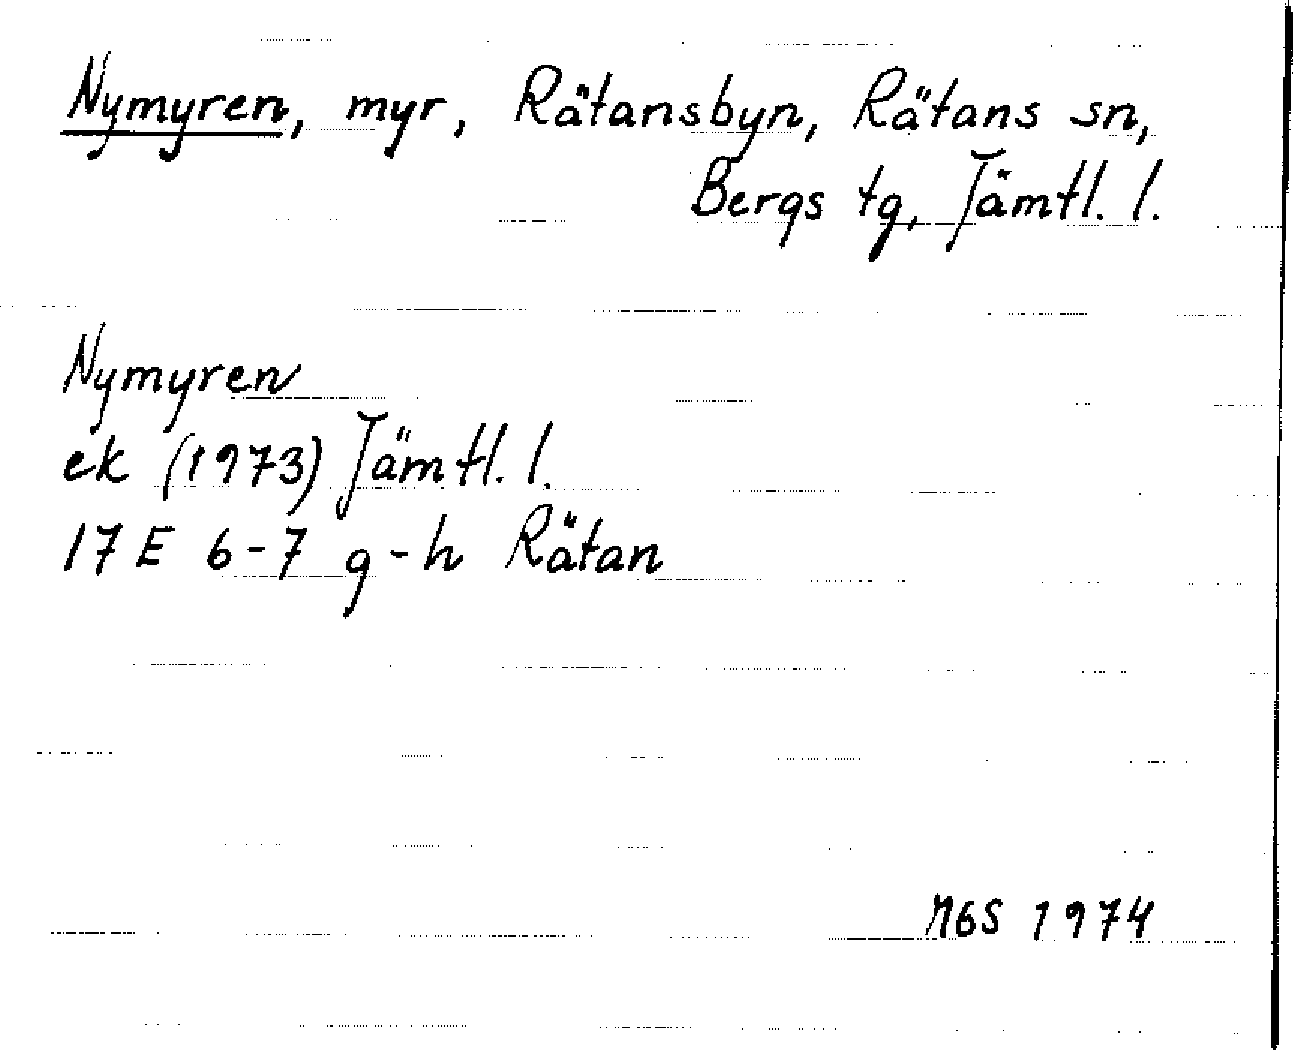 Nymyren, myr, Rätansbyn, Rätans sn,
Bergs tg, Jämtl. l.
Nymyren
ek (1973) Jämtl. l.
17 E 6-7 g-h Rätan
MGS 1974